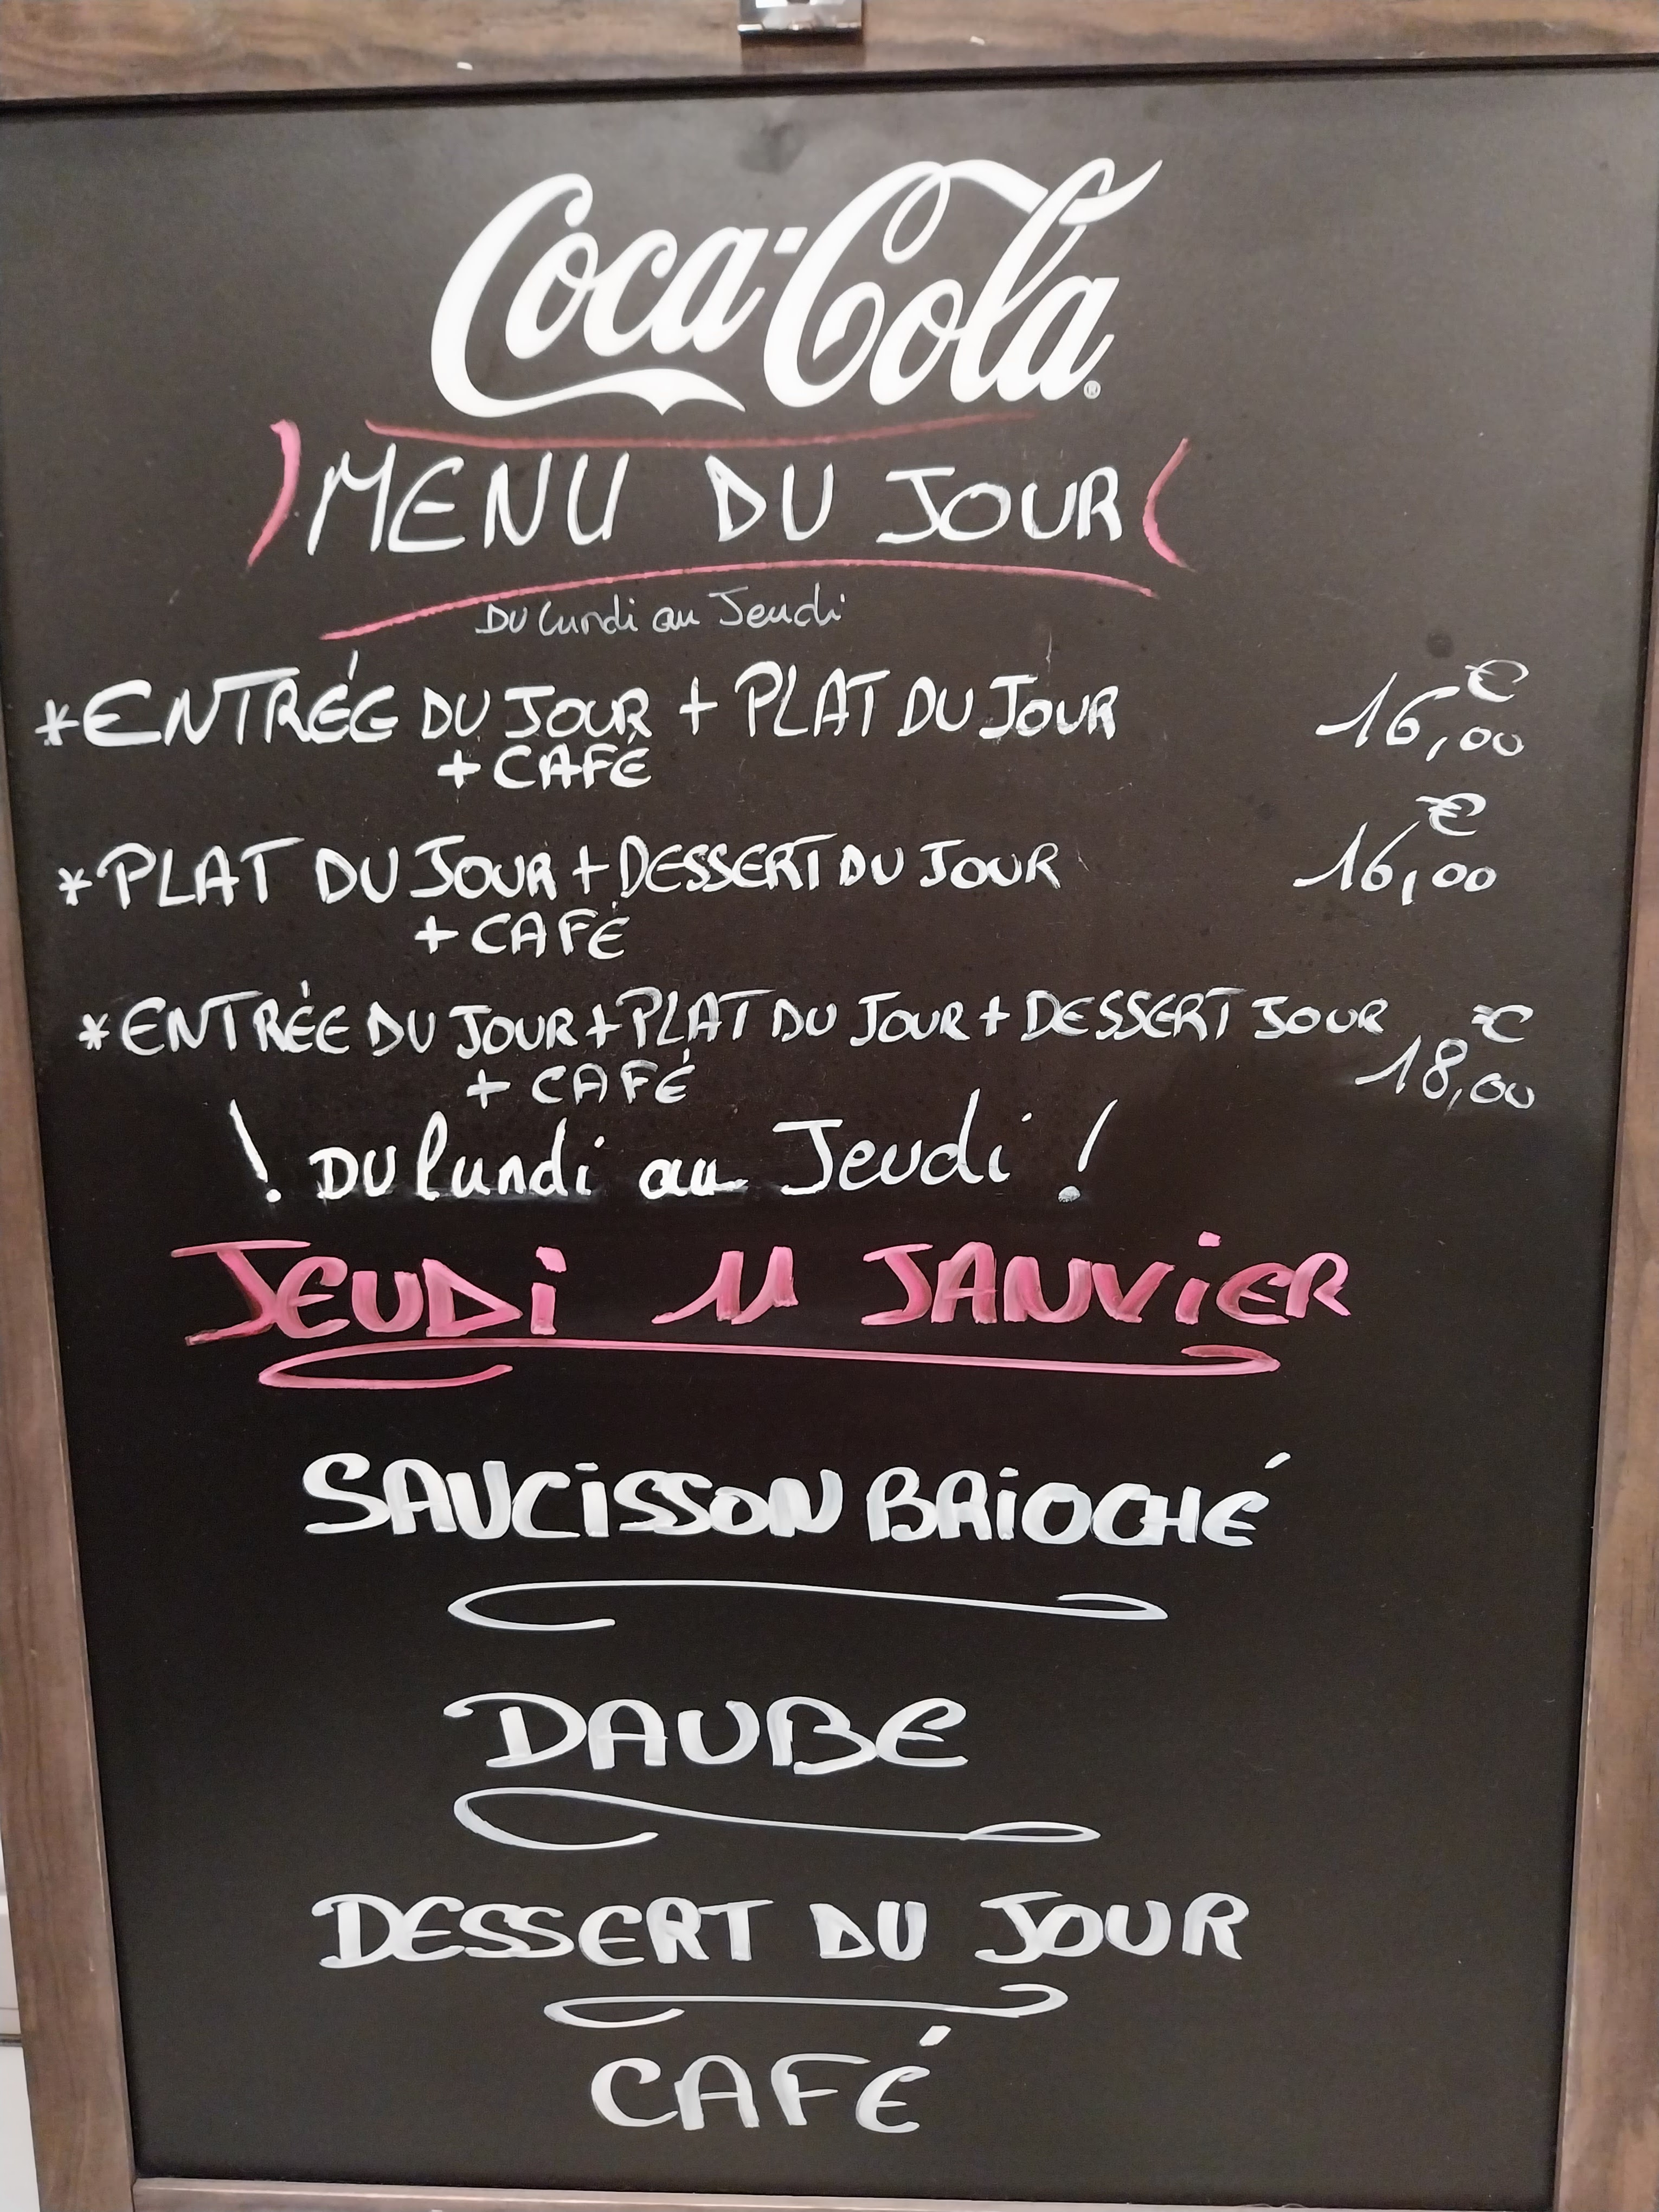 Coca-Cola
MENU DU JOUR
DU lundi au Jeudi
*ENTRÉE DU JOUR + PLAT DU JOUR 16,00€
+ CAFÉ
*PLAT DU JOUR + DESSERT DU JOUR 16,00€
+ CAFÉ
*ENTRÉE DU JOUR + PLAT DU JOUR + DESSERT JOUR 18,00€
+ CAFÉ
! DU lundi au Jeudi !
JEUDi 11 JANViER
SAUCiSSON BRiOCHÉ
DAUBE
DESSERT DU JOUR
CAFÉ